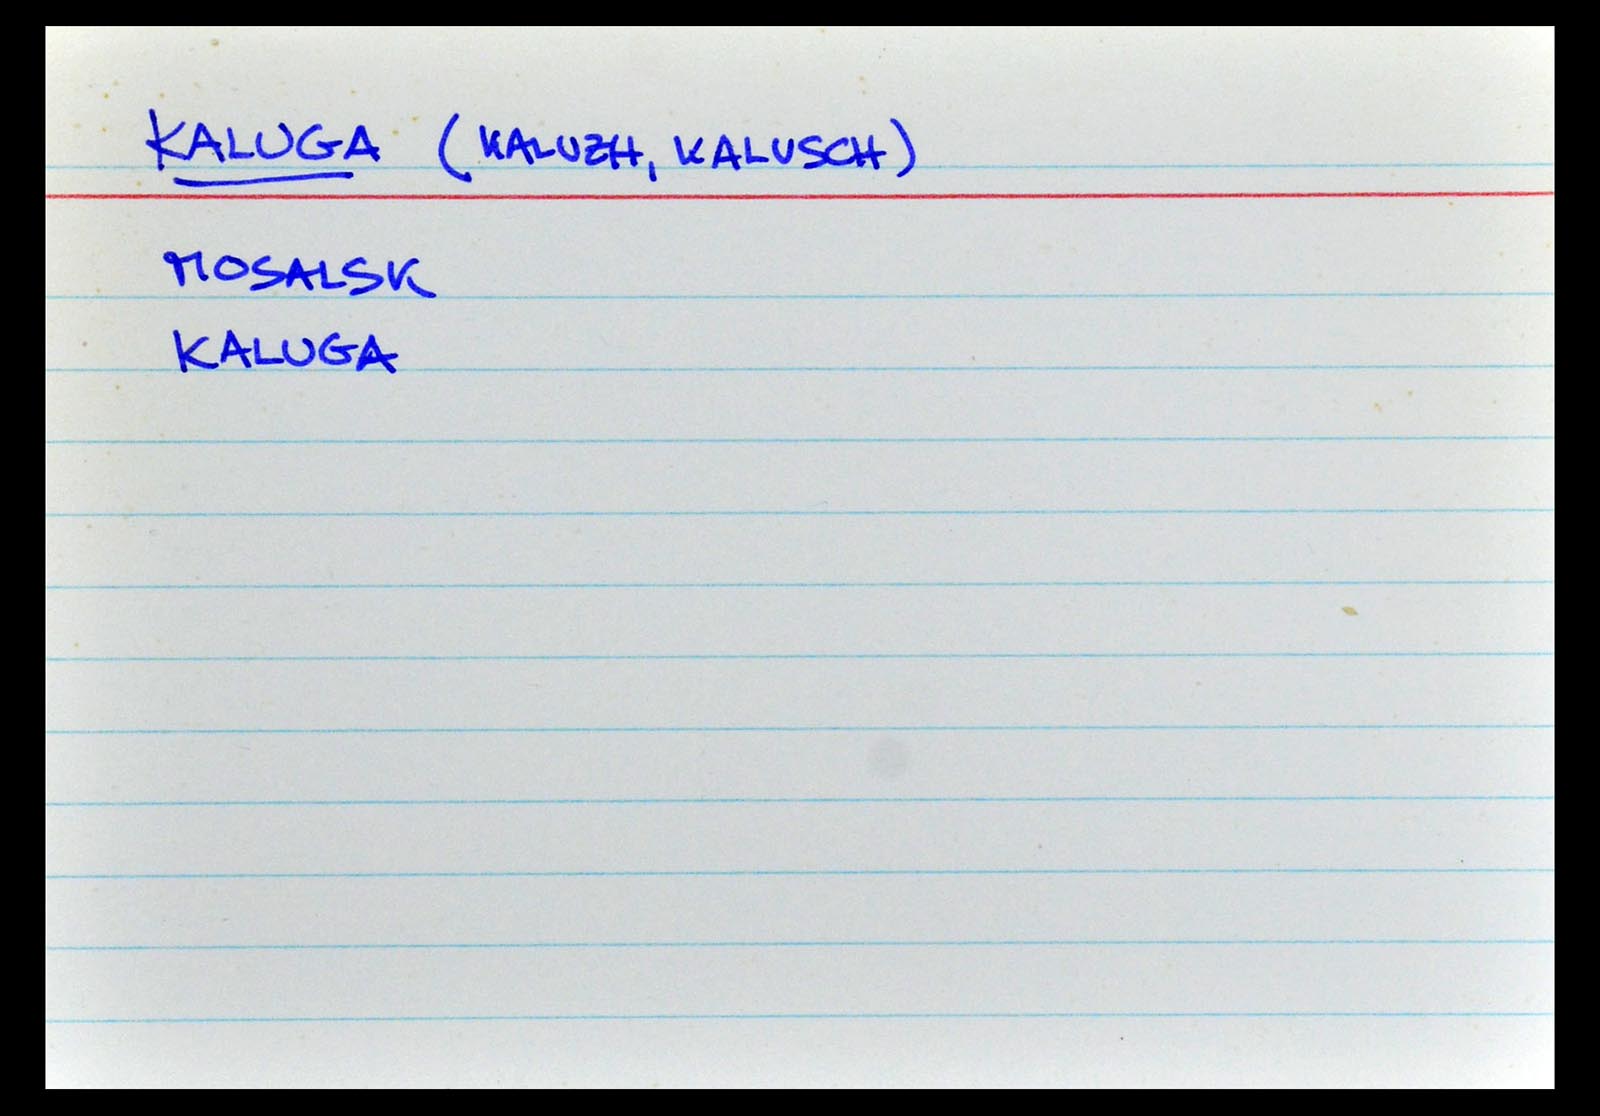 KALUGA (KALUZH, KALUSCH)
MOSALSK
KALUGA